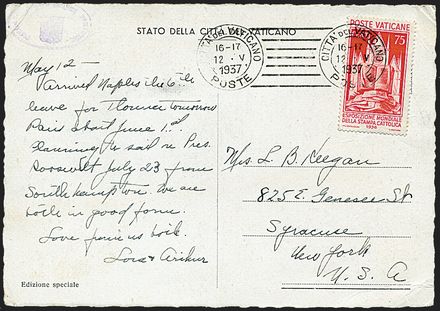 STATO DELLA CITTÀ DEL VATICANO
CITTÀ DEL VATICANO
16-17
12 · V
1937
POSTE
CITTÀ DEL VATICANO
16-17
12 · V
1937
POSTE
POSTE VATICANE
75
ESPOSIZIONE MONDIALE
DELLA STAMPA CATTOLICA
1936
May 12—
Arrived Naples the 6th
leave for Florence tomorrow
Paris about June 1st.
Planning to sail on Pres.
Roosevelt July 23 from
Southampton. We are
both in good form.
Love from us both.
Lois & Arthur
Mrs. L. B. Keegan
825 E. Genesee St
Syracuse
New York
U. S. A
Edizione speciale